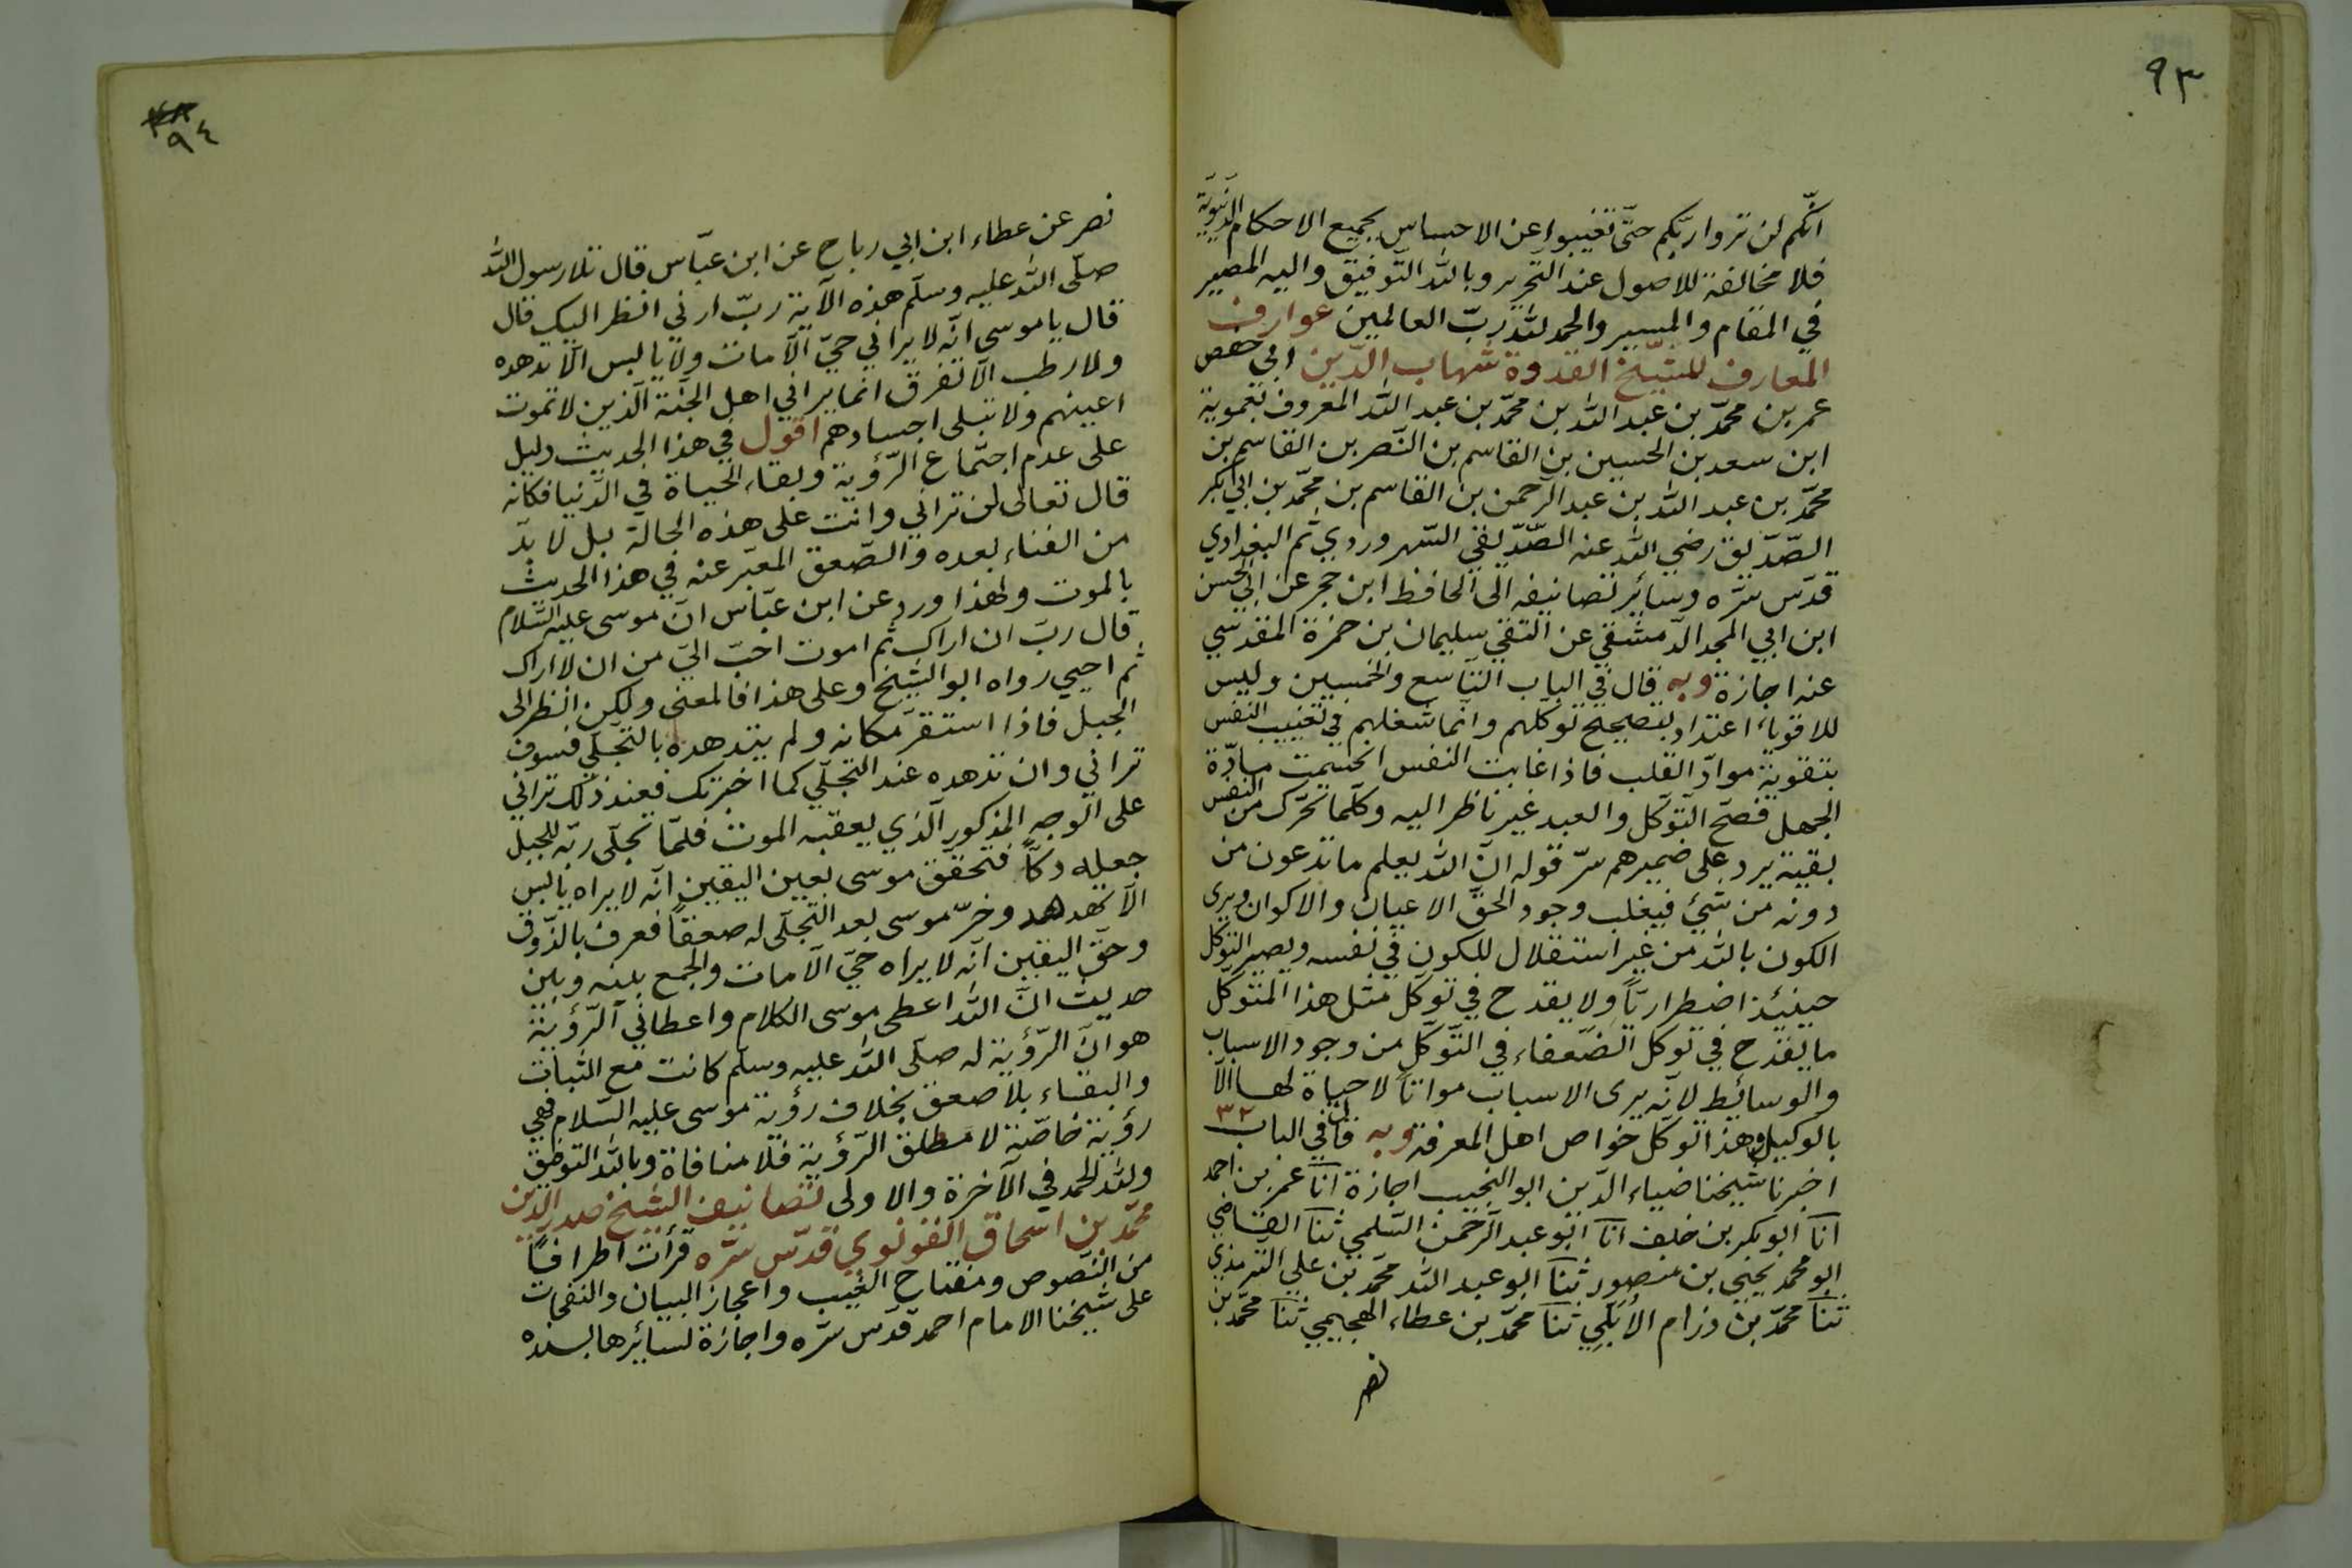 ٩٣
انّكم لن تروا ربّكم حتّى تغيبوا عن الاحساس بجميع الاحكام الدّنيويّة
فلا مخالفة للاصول عند التّحرير وبالله التّوفيق واليه المصير
في المقام والمسير والحمد لله ربّ العالمين عوارف
المعارف للشّيخ القدوة شهاب الدّين ابي حفص
عمر بن محمّد بن عبد الله بن محمّد بن عبد الله المعروف بعمويه
ابن سعد بن الحسين بن القاسم بن النّصر بن القاسم بن
محمّد بن عبد الله بن عبد الرّحمن بن القاسم بن محمّد بن ابي بكر
الصّدّيق رضي الله عنه الصّدّيقي السّهروردي ثم البغدادي
قدّس سرّه وسائر تصانيفه الى الحافظ ابن حجر عن ابي الحسن
ابن ابي المجد الدّمشقي عن التقي سليمان بن حمزة المقدسي
عنه اجازة وبه قال في الباب التّاسع والخمسين وليس
للاقوياء اعتداد بتصحيح توكلهم وانّما شغلهم في تغييب النفس
بتقوية موادّ القلب فاذا غابت النفس انحسمت مادّة
الجهل فصحّ التّوكّل والعبد غير ناظر اليه وكلّما تحرّك من النفس
بقية يرد على ضميرهم سرّ قوله انّ الله يعلم ما تدعون من
دونه من شئ فيغلب وجود الحقّ الاعيان والاكوان ويرى
الكون بالله من غير استقلال للكون في نفسه ويصير التوكل
حينئذ اضطراريّاً ولا يقدح في توكل مثل هذا المتوكّل
ما يقدح في توكل الضّعفاء في التّوكّل من وجود الاسباب
والوسائط لانّه يرى الاسباب مواتاً لا حياة لها الّا
بالوكيل وهذا توكّل خواص اهل المعرفة وبه قال في الباب ٣٢
اخبرنا شيخنا ضياء الدّين ابو النّجيب اجازة انا عمر بن احمد
انا ابو بكر بن خلف انا ابو عبد الرّحمن السّلمي ثنا القاضي
ابو محمّد يحيى بن منصور ثنا ابو عبد الله محمّد بن علي الترمذي
ثنا محمّد بن رزام الأُبُلّي ثنا محمّد بن عطاء الهجيمي ثنا محمّد بن
نصر
٩٤
نصر عن عطاء ابن ابي رباح عن ابن عبّاس قال تلا رسول الله
صلّى الله عليه وسلّم هذه الآية ربّ ارني انظر اليك قال
قال يا موسى انّه لا يراني حيّ الّا مات ولا يابس الّا تدهده
ولا رطب الّا تفرق انّما يراني اهل الجنّة الّذين لا تموت
اعينهم ولا تبلى اجسادهم اقول في هذا الحديث دليل
على عدم اجتماع الرّؤية وبقاء الحياة في الدّنيا فكانه
قال تعالى لن تراني وانت على هذه الحالة بل لا بدّ
من الفناء بعده والصّعق المعبّر عنه في هذا الحديث
بالموت ولهذا ورد عن ابن عبّاس انّ موسى عليه السّلام
قال ربّ ان اراك ثم اموت احبّ اليّ من ان لا اراك
ثم احيي رواه ابو الشّيخ وعلى هذا فالمعنى ولكن انظر الى
الجبل فاذا استقرّ مكانه ولم يتدهده بالتجلّي فسوف
تراني وان تدهده عند التجلّي كما اخبرتك فعند ذلك تراني
على الوجه المذكور الّذي يعقبه الموت فلمّا تجلّى ربّه للجبل
جعله دكّاً فتحقّق موسى بعين اليقين انّه لا يراه يابس
الّا تدهده وخرّ موسى بعد التّجلّي له صعقاً فعرف بالذّوق
وحقّ اليقين انّه لا يراه حيّ الّا مات والجمع بينه وبين
حديث انّ الله اعطى موسى الكلام واعطاني الرّؤية
هو انّ الرّؤية له صلّى الله عليه وسلّم كانت مع الثّبات
والبقاء بلا صعق بخلاف رؤية موسى عليه السّلام فهي
رؤية خاصّة لا مطلق الرّؤية فلا منافاة وبالله التوفيق
ولله الحمد في الآخرة والاولى تصانيف الشّيخ صدر الدّين
محمّد بن اسحاق القونوي قدّس سرّه قرأت اطرافاً
من النّصوص ومفتاح الغيب واعجاز البيان والنفحات
على شيخنا الامام احمد قدّس سرّه واجازة لسائرها بسنده